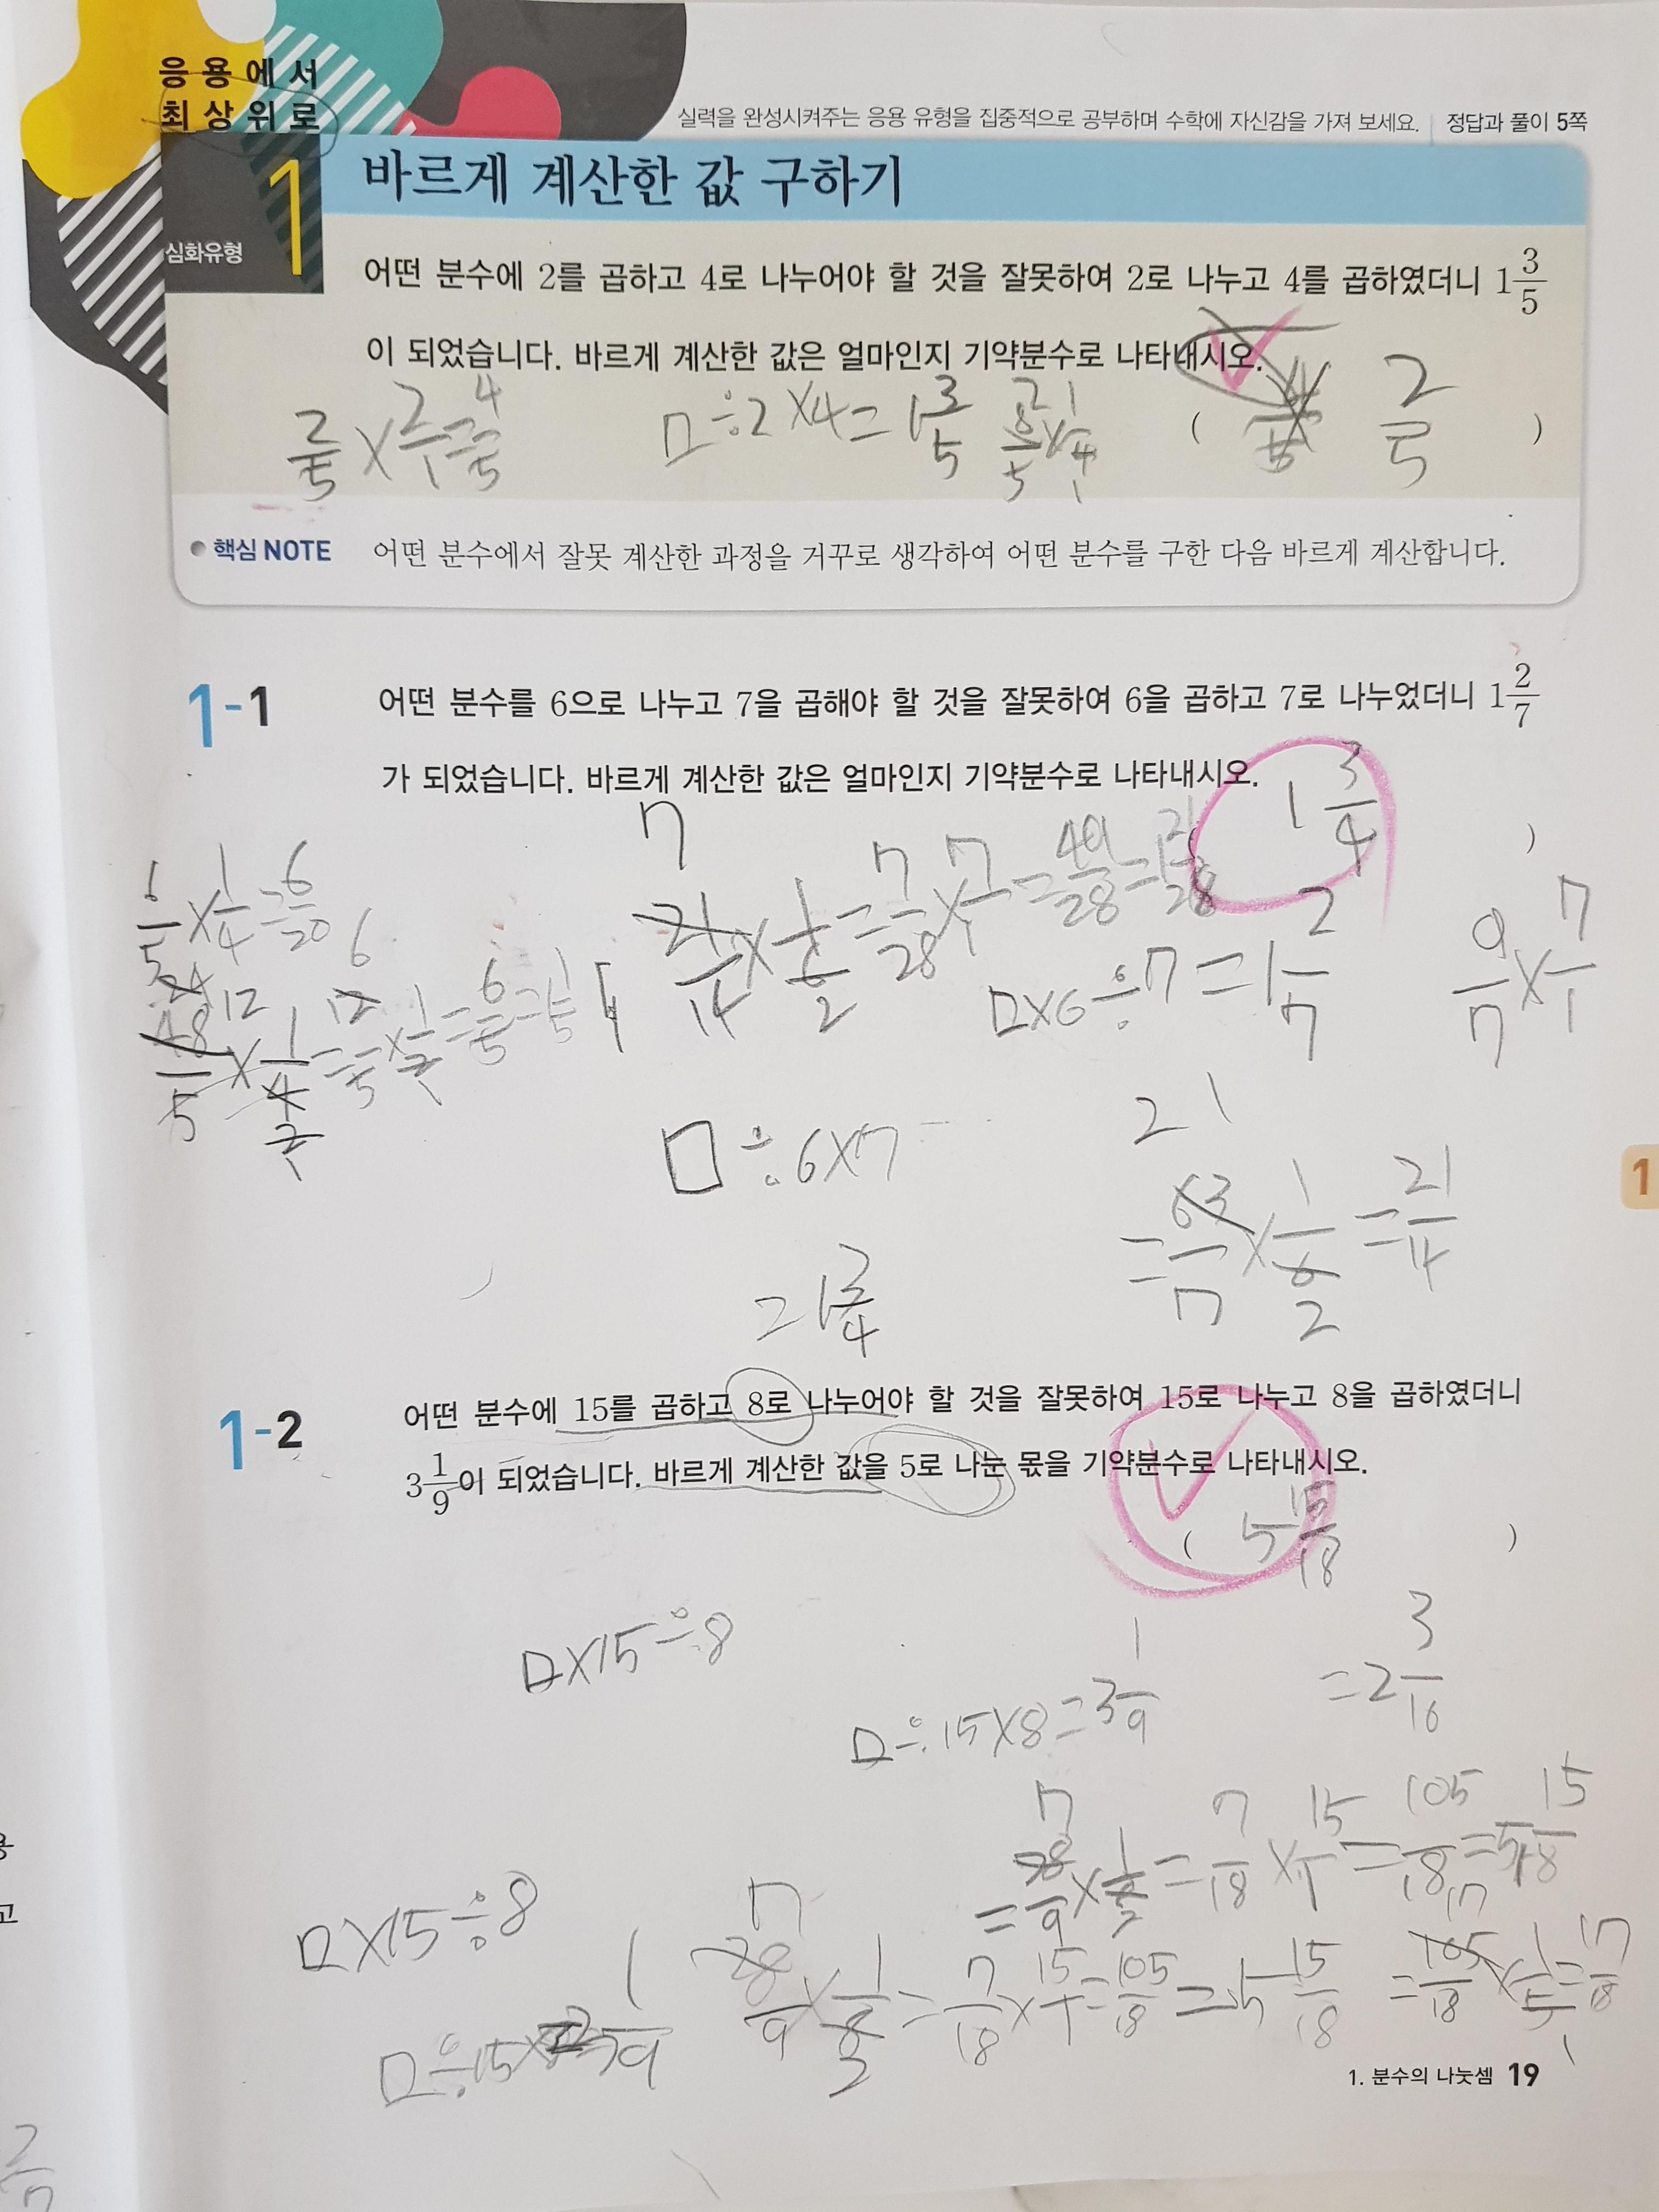 응용에서
최상위로
실력을 완성시켜주는 응용 유형을 집중적으로 공부하며 수학에 자신감을 가져 보세요. 정답과 풀이 5쪽
심화유형 1 바르게 계산한 값 구하기
어떤 분수에 2를 곱하고 4로 나누어야 할 것을 잘못하여 2로 나누고 4를 곱하였더니 1 3/5
이 되었습니다. 바르게 계산한 값은 얼마인지 기약분수로 나타내시오.
2/5 × 2/1 = 4/5 □÷2×4=1 3/5 ( 2/5 )
핵심 NOTE 어떤 분수에서 잘못 계산한 과정을 거꾸로 생각하여 어떤 분수를 구한 다음 바르게 계산합니다.
1-1 어떤 분수를 6으로 나누고 7을 곱해야 할 것을 잘못하여 6을 곱하고 7로 나누었더니 1 2/7
가 되었습니다. 바르게 계산한 값은 얼마인지 기약분수로 나타내시오.
1 3/4 )
6/5 × 1/4 = 6/20
21/14 × 1/6 = 7/28 × 7/1 = 49/28 = 1 21/28
□×6÷7=1 2/7 9/7 × 7/1
48/5 × 1/4 = 12/5 × 1/2 = 6/5 = 1 1/5
□÷6×7
= 63/7 × 1/6 = 21/14
= 1 3/4
1-2 어떤 분수에 15를 곱하고 8로 나누어야 할 것을 잘못하여 15로 나누고 8을 곱하였더니
3 1/9이 되었습니다. 바르게 계산한 값을 5로 나눈 몫을 기약분수로 나타내시오.
( 5 15/18 )
□×15÷8
□÷15×8=3 1/9 = 2 3/16
= 28/9 × 1/8 = 7/18 × 15/1 = 105/18 = 5 15/18
□×15÷8
28/9 × 1/8 = 7/18 × 15/1 = 105/18 = 5 15/18 = 105/18 × 1/5 = 17/18
□÷15
1
1. 분수의 나눗셈 19